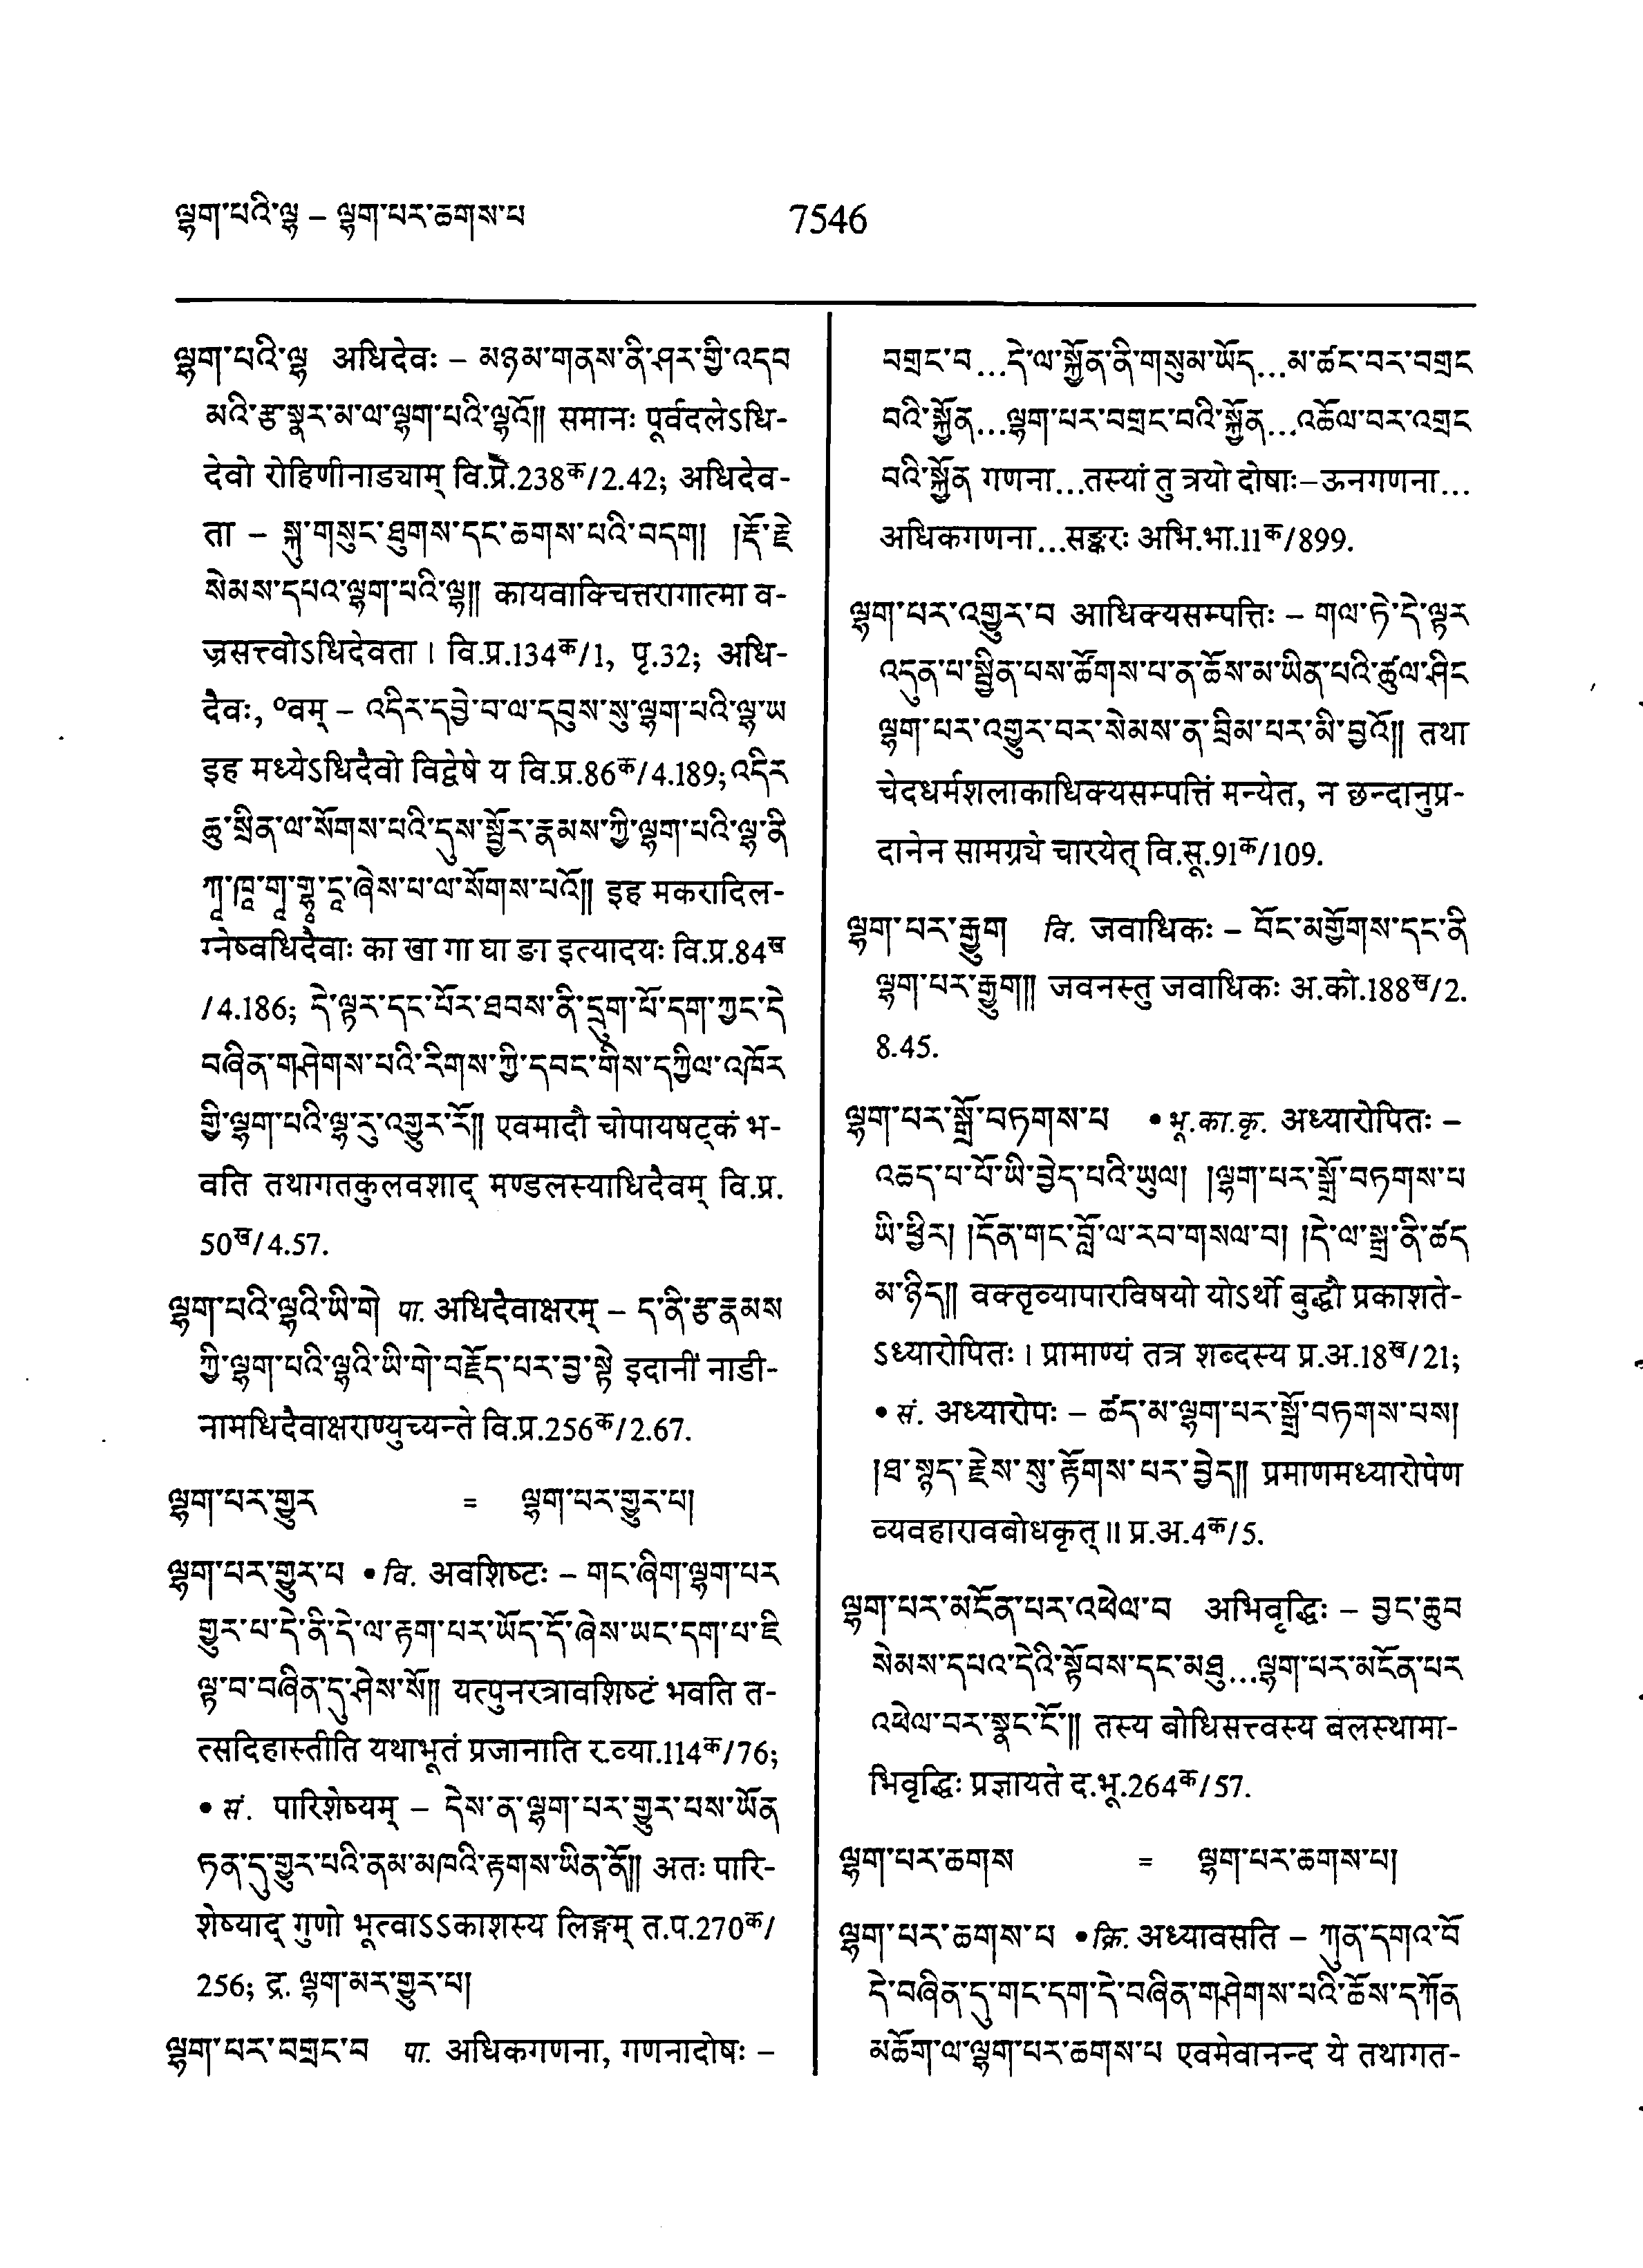 ལྷག་པའི་ལྷ – ལྷག་པར་ཆགས་པ 7546
ལྷག་པའི་ལྷ अधिदेवः – མཉམ་གནས་ནི་ཤར་གྱི་འདབ
མའི་རྩ་སྣར་མ་ལ་ལྷག་པའི་ལྷའོ༎ समानः पूर्वदलेऽधि-
देवो रोहिणीनाड्याम् वि.प्रे.238क/2.42; अधिदेव-
ता – སྐུ་གསུང་ཐུགས་དང་ཆགས་པའི་བདག། །རྡོ་རྗེ
སེམས་དཔའ་ལྷག་པའི་ལྷ༎ कायवाक्चित्तरागात्मा व-
ज्रसत्त्वोऽधिदेवता । वि.प्र.134क/1, पृ.32; अधि-
दैवः, ०वम् – འདིར་དབྱེ་བ་ལ་དབུས་སུ་ལྷག་པའི་ལྷ་ཡ
इह मध्येऽधिदैवो विद्वेषे य वि.प्र.86क/4.189; འདིར
ཆུ་སྲིན་ལ་སོགས་པའི་དུས་སྦྱོར་རྣམས་ཀྱི་ལྷག་པའི་ལྷ་ནི
ཀཱ་ཁཱ་གཱ་གྷཱ་ངཱ་ཞེས་པ་ལ་སོགས་པའོ༎ इह मकरादिल-
ग्नेष्वधिदैवाः का खा गा घा ङा इत्यादयः वि.प्र.84ख
/4.186; དེ་ལྟར་དང་པོར་ཐབས་ནི་དྲུག་པོ་དག་ཀྱང་དེ
བཞིན་གཤེགས་པའི་རིགས་ཀྱི་དབང་གིས་དཀྱིལ་འཁོར
གྱི་ལྷག་པའི་ལྷ་རུ་འགྱུར་རོ༎ एवमादौ चोपायषट्कं भ-
वति तथागतकुलवशाद् मण्डलस्याधिदैवम् वि.प्र.
50ख/4.57.
ལྷག་པའི་ལྷའི་ཡི་གེ पा. अधिदैवाक्षरम् – ད་ནི་རྩ་རྣམས
ཀྱི་ལྷག་པའི་ལྷའི་ཡི་གེ་བརྗོད་པར་བྱ་སྟེ इदानीं नाडी-
नामधिदैवाक्षराण्युच्यन्ते वि.प्र.256क/2.67.
ལྷག་པར་གྱུར = ལྷག་པར་གྱུར་པ།
ལྷག་པར་གྱུར་པ • वि. अवशिष्टः – གང་ཞིག་ལྷག་པར
གྱུར་པ་དེ་ནི་དེ་ལ་རྟག་པར་ཡོད་དོ་ཞེས་ཡང་དག་པ་ཇི
ལྟ་བ་བཞིན་དུ་ཤེས་སོ༎ यत्पुनरत्रावशिष्टं भवति त-
त्सदिहास्तीति यथाभूतं प्रजानाति र.व्या.114क/76;
• सं. पारिशेष्यम् – དེས་ན་ལྷག་པར་གྱུར་པས་ཡོན
ཏན་དུ་གྱུར་པའི་ནམ་མཁའི་རྟགས་ཡིན་ནོ༎ अतः पारि-
शेष्याद् गुणो भूत्वाऽऽकाशस्य लिङ्गम् त.प.270क/
256; द्र. ལྷག་མར་གྱུར་པ།
ལྷག་པར་བགྲང་བ पा. अधिकगणना, गणनादोषः –
བགྲང་བ...དེ་ལ་སྐྱོན་ནི་གསུམ་ཡོད...མ་ཚང་བར་བགྲང
བའི་སྐྱོན...ལྷག་པར་བགྲང་བའི་སྐྱོན...འཆོལ་བར་འགྲང
བའི་སྐྱོན गणना...तस्यां तु त्रयो दोषाः–ऊनगणना...
अधिकगणना...सङ्करः अभि.भा.11क/899.
ལྷག་པར་འགྱུར་བ आधिक्यसम्पत्तिः – གལ་ཏེ་དེ་ལྟར
འདུན་པ་སྦྱིན་པས་ཚོགས་པ་ན་ཆོས་མ་ཡིན་པའི་ཚུལ་ཤིང
ལྷག་པར་འགྱུར་བར་སེམས་ན་བྲིམ་པར་མི་བྱའོ༎ तथा
चेदधर्मशलाकाधिक्यसम्पत्तिं मन्येत, न छन्दानुप्र-
दानेन सामग्र्ये चारयेत् वि.सू.91क/109.
ལྷག་པར་རྒྱུག वि. जवाधिकः – བོང་མགྱོགས་དང་ནི
ལྷག་པར་རྒྱུག༎ जवनस्तु जवाधिकः अ.को.188ख/2.
8.45.
ལྷག་པར་སྒྲོ་བཏགས་པ • भू.का.कृ. अध्यारोपितः –
འཆད་པ་པོ་ཡི་བྱེད་པའི་ཡུལ། །ལྷག་པར་སྒྲོ་བཏགས་པ
ཡི་ཕྱིར། །དོན་གང་བློ་ལ་རབ་གསལ་བ། །དེ་ལ་སྒྲ་ནི་ཚད
མ་ཉིད༎ वक्तृव्यापारविषयो योऽर्थो बुद्धौ प्रकाशते-
ऽध्यारोपितः । प्रामाण्यं तत्र शब्दस्य प्र.अ.18ख/21;
• सं. अध्यारोपः – ཚད་མ་ལྷག་པར་སྒྲོ་བཏགས་པས།
།ཐ་སྙད་རྗེས་སུ་རྟོགས་པར་བྱེད༎ प्रमाणमध्यारोपेण
व्यवहारावबोधकृत् ॥ प्र.अ.4क/5.
ལྷག་པར་མངོན་པར་འཕེལ་བ अभिवृद्धिः – བྱང་ཆུབ
སེམས་དཔའ་དེའི་སྟོབས་དང་མཐུ...ལྷག་པར་མངོན་པར
འཕེལ་བར་སྣང་ངོ་༎ तस्य बोधिसत्त्वस्य बलस्थामा-
भिवृद्धिः प्रज्ञायते द.भू.264क/57.
ལྷག་པར་ཆགས = ལྷག་པར་ཆགས་པ།
ལྷག་པར་ཆགས་པ • क्रि. अध्यावसति – ཀུན་དགའ་བོ
དེ་བཞིན་དུ་གང་དག་དེ་བཞིན་གཤེགས་པའི་ཆོས་དཀོན
མཆོག་ལ་ལྷག་པར་ཆགས་པ एवमेवानन्द ये तथागत-